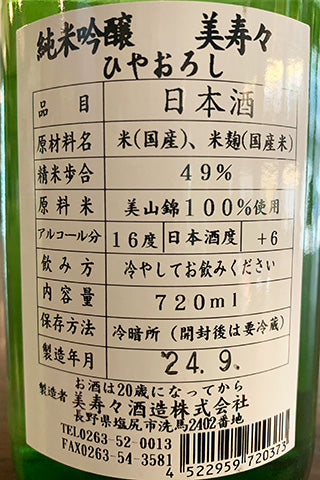 純米吟醸 美寿々
ひやおろし
品目 日本酒
原材料名 米(国産)、米麹(国産米)
精米歩合 49%
原料米 美山錦100%使用
アルコール分 16度 日本酒度 +6
飲み方 冷やしてお飲みください
内容量 720ml
保存方法 冷暗所(開封後は要冷蔵)
製造年月 24.9.
お酒は20歳になってから
製造者 美寿々酒造株式会社
長野県塩尻市洗馬2402番地
TEL0263-52-0013
FAX0263-54-3581
4522959720373